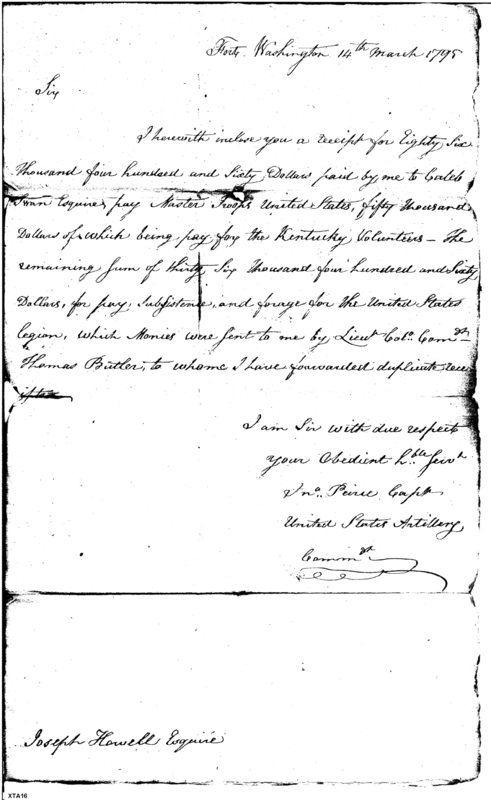 Fort Washington 14th March 1795
Sir
I herewith inclose you a receipt for Eighty Six
thousand four hundred and Sixty Dollars paid by me to Caleb
Swan Esquire, pay Master Troops United States, fifty thousand
Dollars of which being pay for the Kentucky Volunteers – The
remaining Sum of thirty Six thousand four hundred and Sixty
Dollars, for pay, Subsistence, and forage for the United States
Legion, which Monies were sent to me by Lieut Colo. Comdt
Thomas Butler, to whome I have forwarded duplicate rece
ipts
I am Sir with due respect
your Obedient hble Servt
Jno. Peirce Capt
United States Artillery
Commdt
Joseph Howell Esquire
XTA16